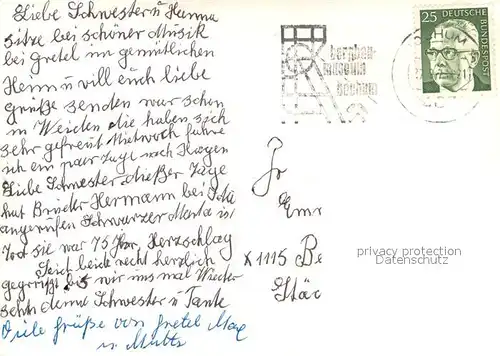 Liebe Schwester u Hanna
sitze bei schöner Musik
bei Gretel im gemütlichen
Heim u will euch liebe
grüße senden war schon
in Weiden die haben sich
sehr gefreut Mittwoch fahre
ich ein paar Tage nach Hagen
Liebe Schwester dießer Tage
hat Bruder Hermann bei
angerufen Schwarzer Marta ist
Tod sie war 75 Jhr, Herzschlag
Seid beide recht herzlich
gegrüßt bis wir uns mal Wieder
sehn deine Schwester u Tante
Viele grüße von Gretel Max
u. Mutti
bergbau-
museum
bochum
BOCHUM
25 DEUTSCHE BUNDESPOST
Fr
X 1115 Be
privacy protection
Datenschutz